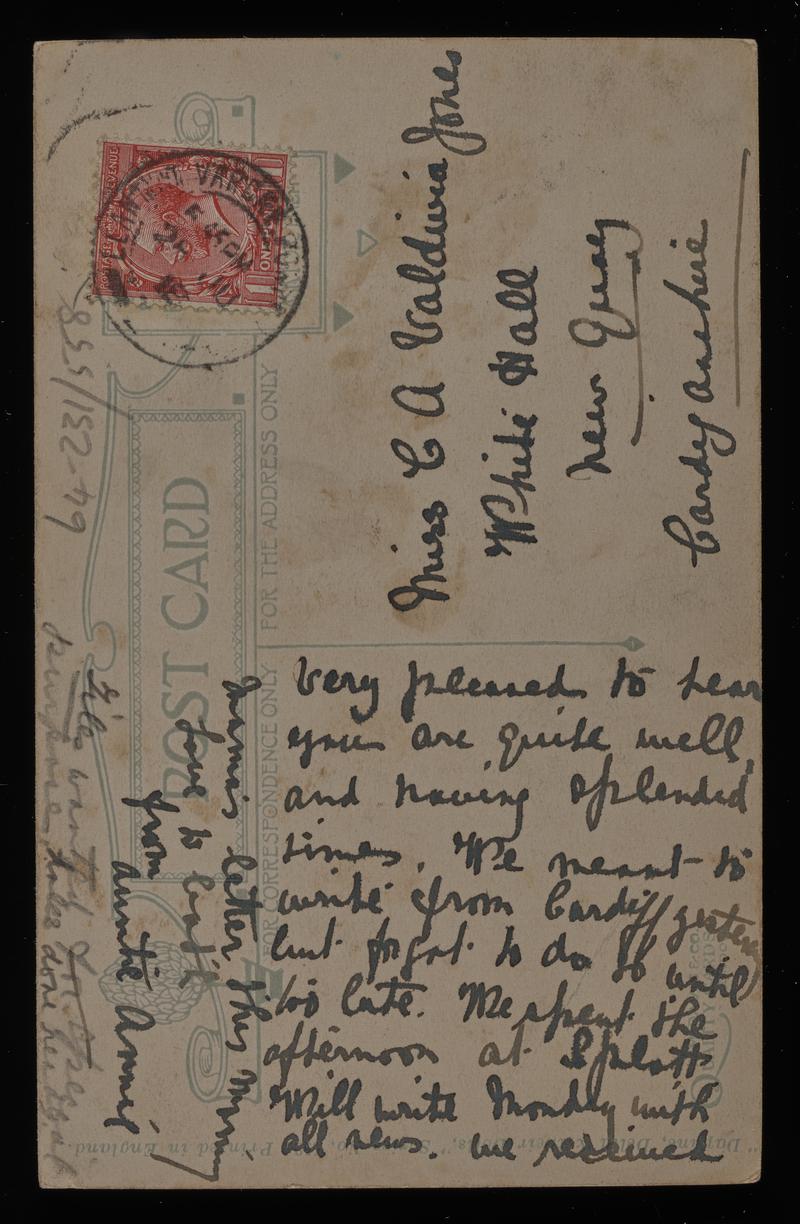 POST CARD
FOR THE ADDRESS ONLY
FOR CORRESPONDENCE ONLY
Miss C A Valdivia Jones
White Hall
New Quay
Cardiganshire
Very pleased to hear
you are quite well,
and having splendid
times. We meant to
write from Cardiff yester
but forgot to do so until
too late. We spent the
afternoon at Splott
Will write Monday with
all news. We received
Mamma's letter this morning
love to both
from
Auntie Annie
855/132-49
Printed in England
POSTAGE REVENUE
ONE PENNY